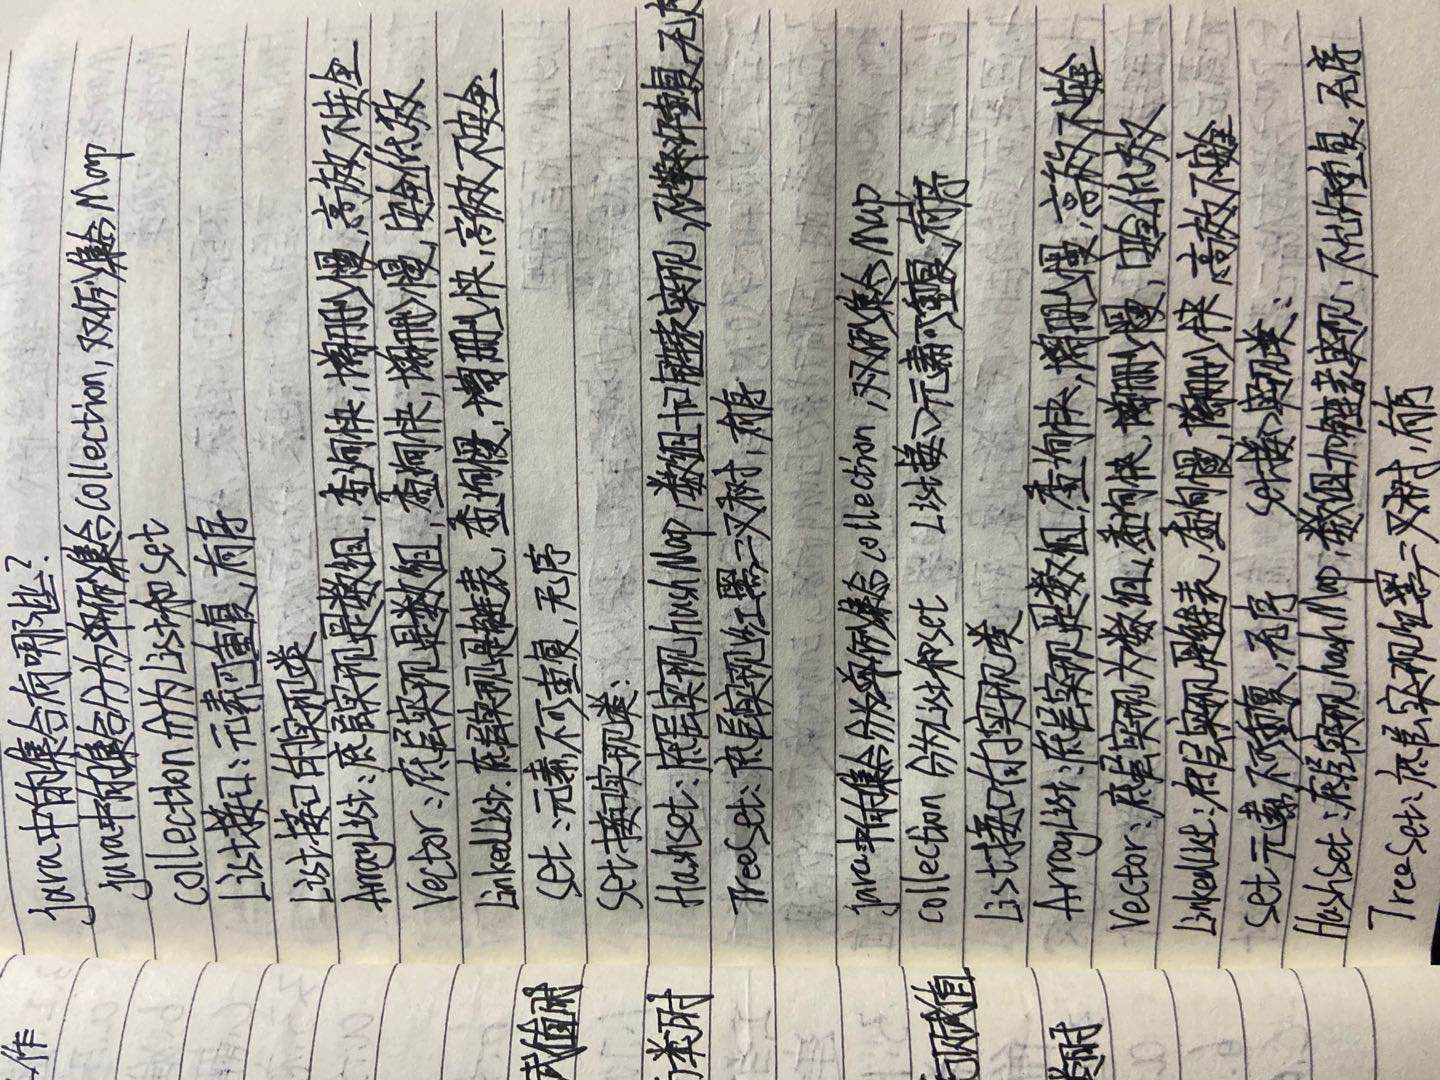 作
java中的集合有哪些?
java中的集合分为单例集合collection,双例集合Map
collection分为List和set
List接口:元素可重复,有序
List接口的实现类
ArrayList:底层实现是数组,查询快,增删慢,高效不安全
Vector:底层实现是数组,查询快,增删慢,安全低效
LinkedList:底层实现是链表,查询慢,增删快,高效不安全
set:元素不可重复,无序
set接口实现类:
Hashset:底层实现hashMap,数组加链表实现,不允许重复,无序
TreeSet:底层实现红黑二叉树,有序
java中的集合分为单例集合collection,双例集合Map
collection分为List和set List接口元素可重复,有序
List接口的实现类
ArrayList:底层实现是数组,查询快,增删慢,高效不安全
Vector:底层实现为数组,查询快,增删慢,安全低效
LinkedList:底层实现是链表,查询慢,增删快,高效不安全
set元素不可重复,无序 set接口实现类:
HashSet:底层实现hashMap,数组加链表实现,不允许重复,无序
TreeSet:底层实现红黑二叉树,有序
值时
类时
赋值
时